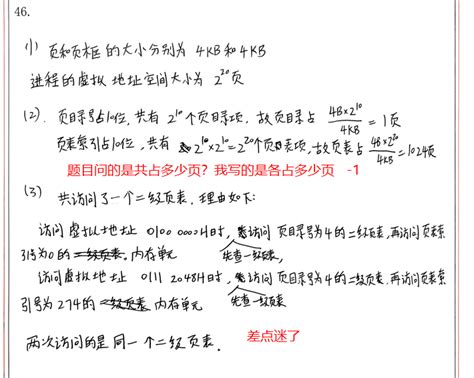 46.
(1) 页和页框的大小分别为 4KB和4KB
进程的虚拟地址空间大小为 2²⁰页
(2). 页目录号占10位, 共有 2¹⁰个页目录项, 故页目录占 4B×2¹⁰/4KB = 1页
页表索引占10位, 共有 2¹⁰×2¹⁰=2²⁰个页表项, 故页表占 4B×2²⁰/4KB = 1024页
题目问的是共占多少页? 我写的是各占多少页 -1
(3) 共访问了一个二级页表. 理由如下:
访问虚拟地址 0100 0000H时, 访问 页目录号为4的二级页表, 再访问页表索
引号为0的 内存单元 先查一级页表,
访问虚拟地址 0111 2048H时, 访问 页目录号为4的二级页表. 再访问页表索
引号为274的 内存单元 先查一级页表
两次访问的是同一个二级页表. 差点迷了